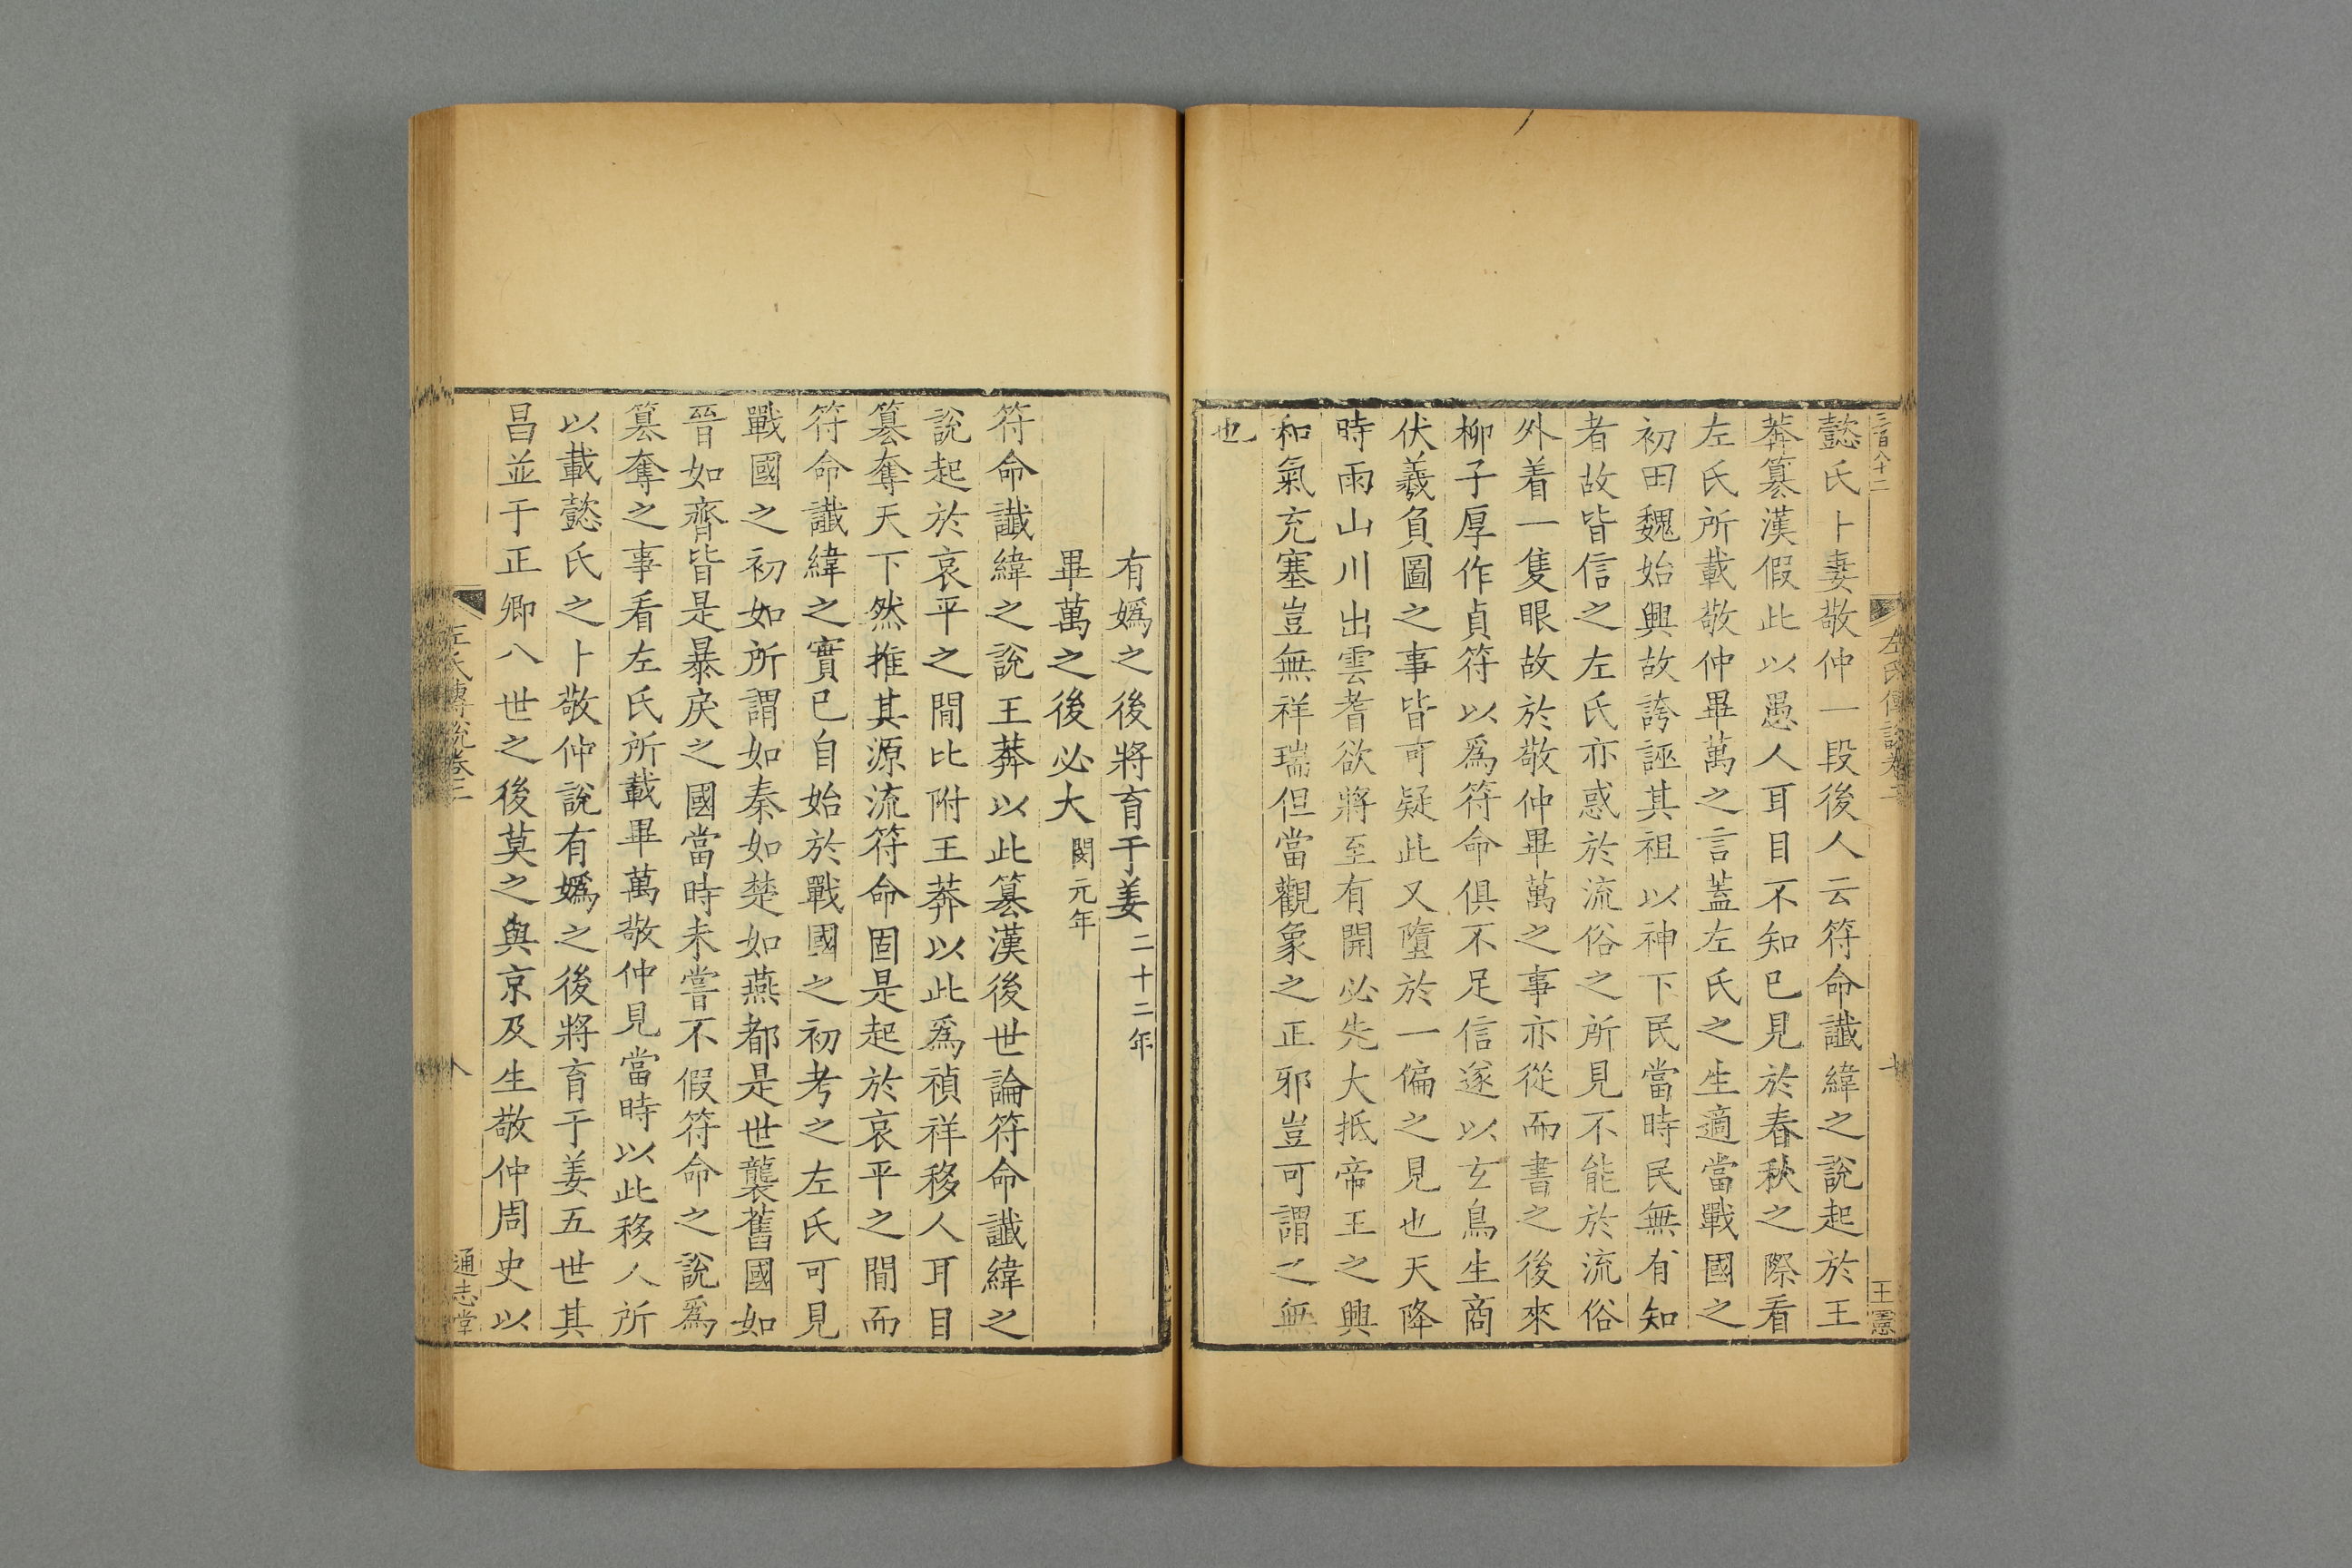 三百八十二
左氏傳說卷
王憲
懿氏卜妻敬仲一段後人云符命讖緯之說起於王
莽篡漢假此以愚人耳目不知已見於春秋之際看
左氏所載敬仲畢萬之言蓋左氏之生適當戰國之
初田魏始興故誇誣其祖以神下民當時民無有知
者故皆信之左氏亦惑於流俗之所見不能於流俗
外着一隻眼故於敬仲畢萬之事亦從而書之後來
柳子厚作貞符以爲符命俱不足信遂以玄鳥生商
伏羲負圖之事皆可疑此又墮於一偏之見也天降
時雨山川出雲耆欲將至有開必先大抵帝王之興
和氣充塞豈無祥瑞但當觀象之正邪豈可謂之無
也
有嬀之後將育于姜二十二年
畢萬之後必大閔元年
符命讖緯之說王莽以此篡漢後世論符命讖緯之
說起於哀平之間比附王莽以此爲禎祥移人耳目
篡奪天下然推其源流符命固是起於哀平之間而
符命讖緯之實已自始於戰國之初考之左氏可見
戰國之初如所謂如秦如楚如燕都是世襲舊國如
晉如齊皆是暴戾之國當時未嘗不假符命之說爲
篡奪之事看左氏所載畢萬敬仲見當時以此移人所
以載懿氏之卜敬仲說有嬀之後將育于姜五世其
昌並于正卿八世之後莫之與京及生敬仲周史以
左氏傳說卷三
八
通志堂